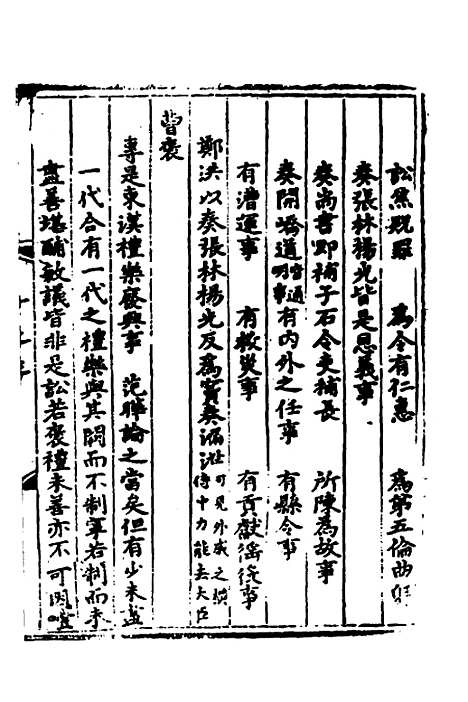 訟焦貺罪　為令有仁惠　為第五倫曲
奏張林楊光皆是恩義事
奏尚書郎補子石令吏補長　所陳為故事
奏開嶠道有內外之任事　有縣令事
有漕運事　有救災事　有貢獻徭役事
鄭洪以奏張林楊光反為竇奏漏泄可見外戚之 傅十力能去大臣
曹褒
專是東漢禮樂廢興事　范曄論之當矣但有少未盡
一代合有一代之禮樂與其闕而不制寧若制而未
盡善堪酺敏議皆非是訟若褒禮未善亦不可因噎